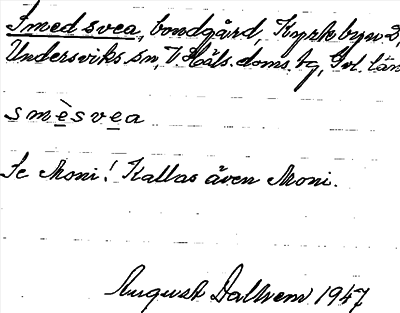 Smedsvea, bondgård, Kyrkbyn 2,
Undersviks sn, V. Häls. doms. tg, Gvl. län
smèsvea
Se Moni! Kallas även Moni.
August Dallvem 1947